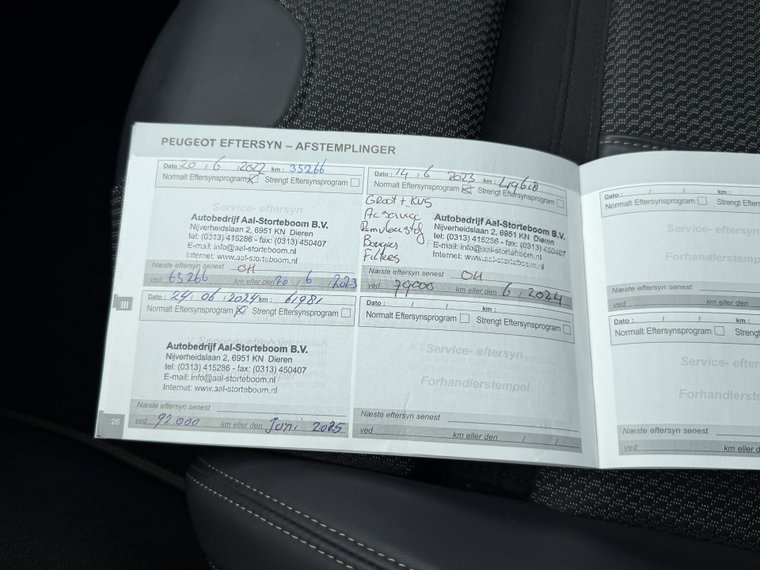 PEUGEOT EFTERSYN – AFSTEMPLINGER
Dato 20 / 6 / 2022 km: 35266
Normalt Eftersynsprogram Strengt Eftersynsprogram
Service- eftersyn
Autobedrijf Aal-Storteboom B.V.
Nijverheidslaan 2, 6951 KN Dieren
tel: (0313) 415286 - fax: (0313) 450407
E-mail: info@aal-storteboom.nl
Internet: www.aal-storteboom.nl
Næste eftersyn senest OH
ved 65266 km eller den 20 / 6 / 2023
Dato 14 / 6 2023 km: 49618
Normalt Eftersynsprogram Strengt Eftersynsprogram
Groot + KWS
Ac service
Remvloeistof
Bougies
Filters
Autobedrijf Aal-Storteboom B.V.
Nijverheidslaan 2, 6951 KN Dieren
tel: (0313) 415286 - fax: (0313) 450407
E-mail: info@aal-storteboom.nl
Internet: www.aal-storteboom.nl
Næste eftersyn senest OH
ved 79000 km eller den 6 / 2024
III
Dato: 24 / 06 / 2024 km: 61981
Normalt Eftersynsprogram Strengt Eftersynsprogram
Autobedrijf Aal-Storteboom B.V.
Nijverheidslaan 2, 6951 KN Dieren
tel: (0313) 415286 - fax: (0313) 450407
E-mail: info@aal-storteboom.nl
Internet: www.aal-storteboom.nl
Næste eftersyn senest
ved 92000 km eller den Juni 2025
26
Dato: / / km:
Normalt Eftersynsprogram Strengt Eftersynsprogram
Service- eftersyn
Forhandlerstempel
Næste eftersyn senest
ved km eller den / /
Dato: / / km:
Normalt Eftersynsprogram Streng
Service- efter
Forhandlerstem
Næste eftersyn senest
ved km eller den
Dato: / / km:
Normalt Eftersynsprogram Streng
Service- efters
Forhandlerste
Næste eftersyn senest
ved km eller den